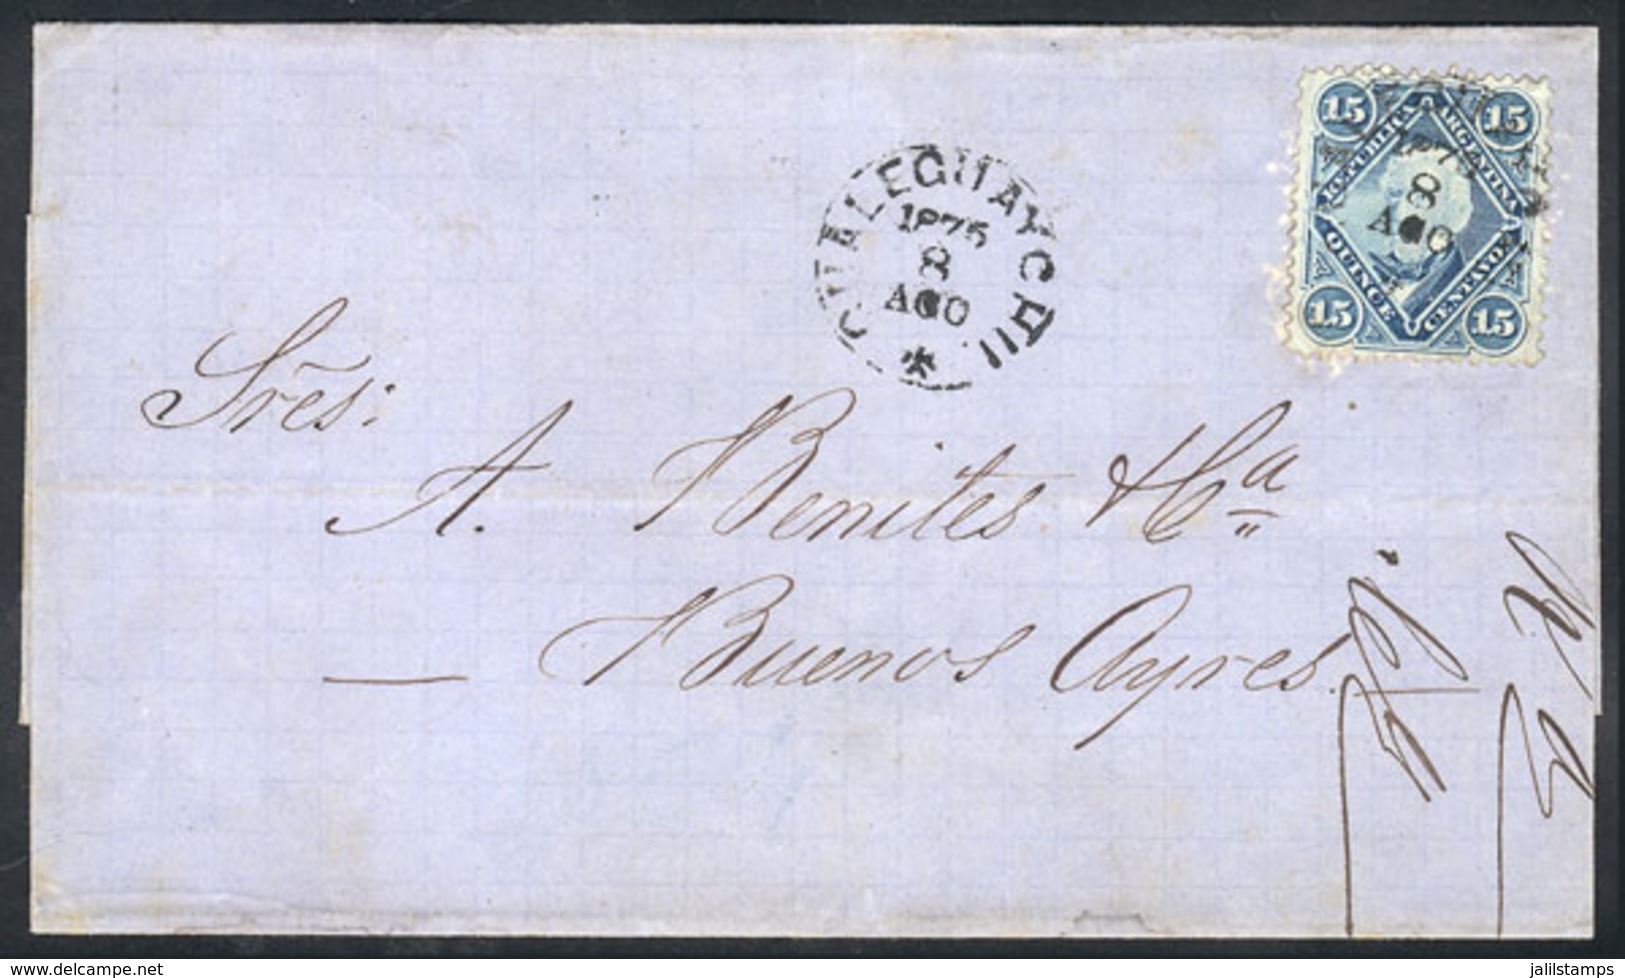 15 15
REPUBLICA ARGENTINA
QUINCE CENTAVOS
15 15
8
AGO
GUALEGUAYCHU
1875
8
AGO
Srēs:
A. Benites & Cª
Buenos Ayres.
delcampe.net
jalilstamps